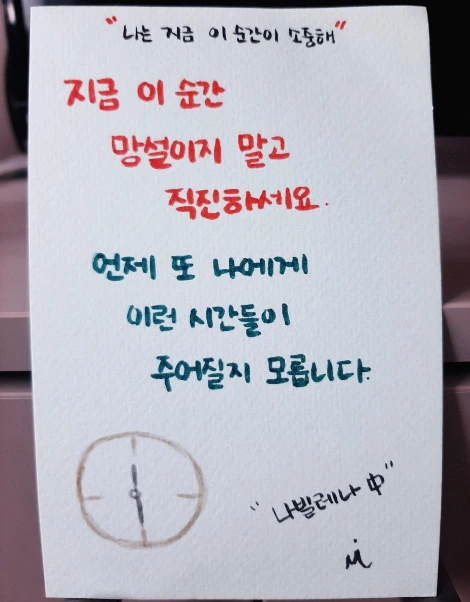 "나는 지금 이 순간이 소중해"
지금 이 순간
망설이지 말고
직진하세요.
언제 또 나에게
이런 시간들이
주어질지 모릅니다.
"나빌레나 中"